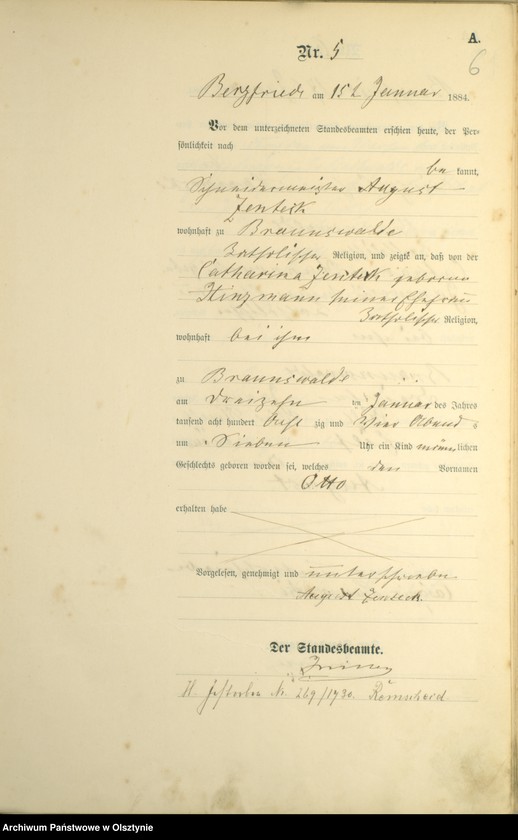 A.
6
Nr. 5
Bergfriede am 15 t Januar 1884.
Vor dem unterzeichneten Standesbeamten erschien heute, der Per-
sönlichkeit nach
be kannt,
Schneidermeister August
Zenteck
wohnhaft zu Braunswalde
katholischer Religion, und zeigte an, daß von der
Catharina Zenteck geborene
Hinzmann seiner Ehefrau
katholischer Religion,
wohnhaft bei ihm
zu Braunswalde
am dreizehn ten Januar des Jahres
tausend acht hundert Acht zig und Vier Abends
um Sieben Uhr ein Kind männlichen
Geschlechts geboren worden sei, welches den Vornamen
Otto
erhalten habe
Vorgelesen, genehmigt und unterschrieben
August Zenteck.
Der Standesbeamte.
H Gestorben Nr. 269/1930.
Archiwum Państwowe w Olsztynie